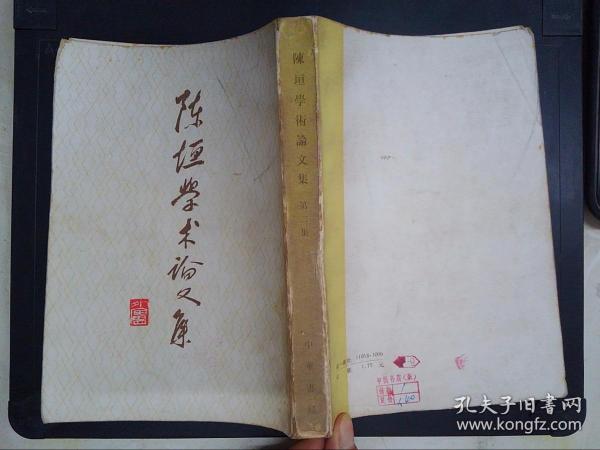 陈垣学术论文集
陳垣學術論文集 第二集
中華書局
11018·1006
1.77 元
孔夫子旧书网
www.kongfz.com